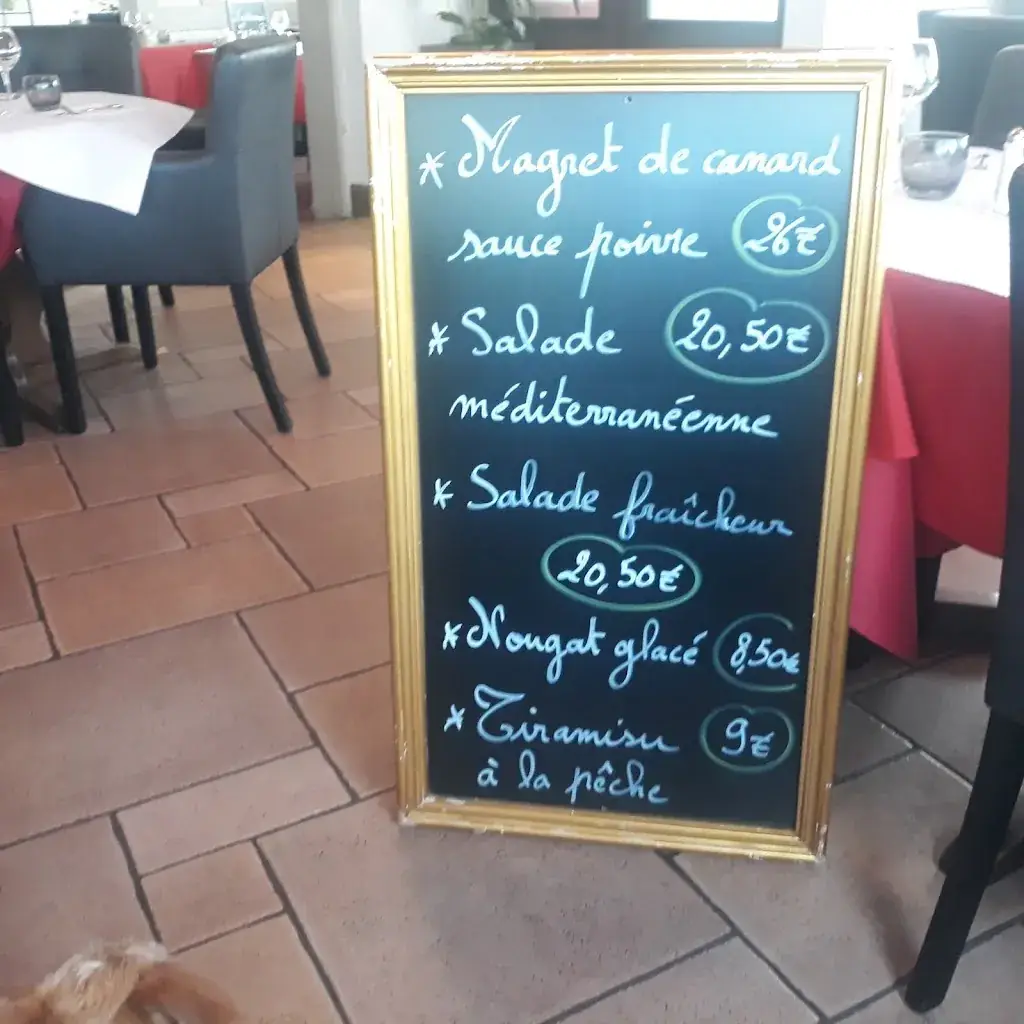 * Magret de canard
sauce poivre 26€
* Salade 20,50€
méditerranéenne
* Salade fraîcheur
20,50€
* Nougat glacé 8,50€
* Tiramisu 9€
à la pêche